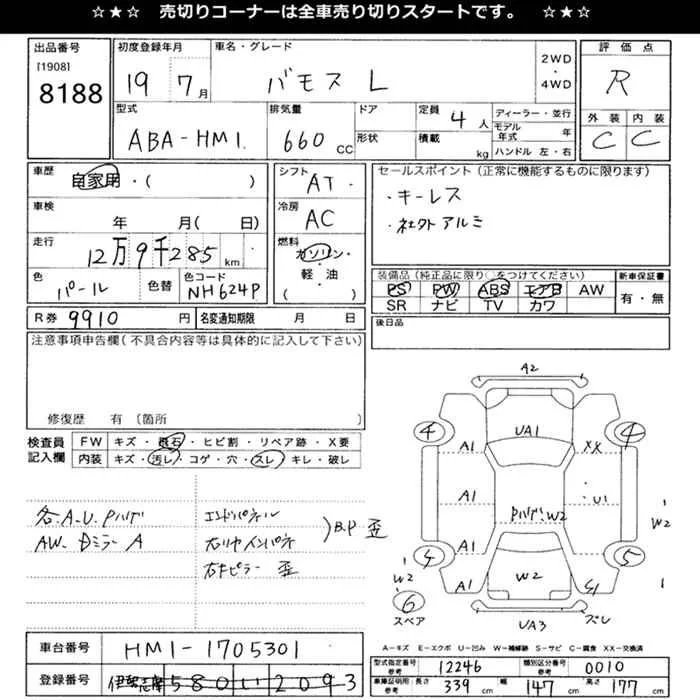 ☆ ★ ☆ 売切りコーナーは全車売り切りスタートです。 ☆ ★ ☆
出品番号 初度登録年月 車名・グレード 2WD・4WD 評価点
[1908]
8188 19 7月 バモス L R
型式 排気量 ドア 定員 4人 ディーラー・並行 外装 内装
ABA-HM1. 660 CC 形状 積載 kg モデル年式 年 C C
ハンドル 左・右
車歴 自家用・( ) シフト AT. セールスポイント(正常に機能するものに限ります)
・キーレス
・社外アルミ
車検 年 月( 日) 冷房 AC
走行 12万9千285 km 燃料 ガソリン・軽・油 ( )
色 パール 色替 色コード NH624P
装備品(純正品に限り○をつけてください) 新車保証書
PS PW ABS エアB AW 有・無
SR ナビ TV カワ
R券 9910 円 名変通知期限 月 日 後日品
注意事項申告欄(不具合内容等は具体的に記入して下さい)
修復歴 有 〔箇所 〕
検査員記入欄 FW キズ・飛石・ヒビ割・リペア跡・X要
内装 キズ・汚レ・コゲ・穴・スレ・キレ・破レ
各.A.U.Pハゲ エンドパネル
AW. Dミラー A 右リヤインパネ B.P 歪
右Fピラー 歪
A2
4 UA1 4
A1 XX
A1 Pハゲ.W2 U1 W2
4 A1 5
W2 A1 W2 S1
6 スペア UA3 ズレ
A-キズ E-エクボ U-凹み W-補修跡 S-サビ C-腐食 XX-交換済
車台番号 HM1-1705301
型式指定番号 参考 12246 類別区分番号 参考 0010
登録番号 伊勢志摩 580 い 2093
車庫証明用 参考 長さ 339 cm 幅 147 cm 高さ 177 cm